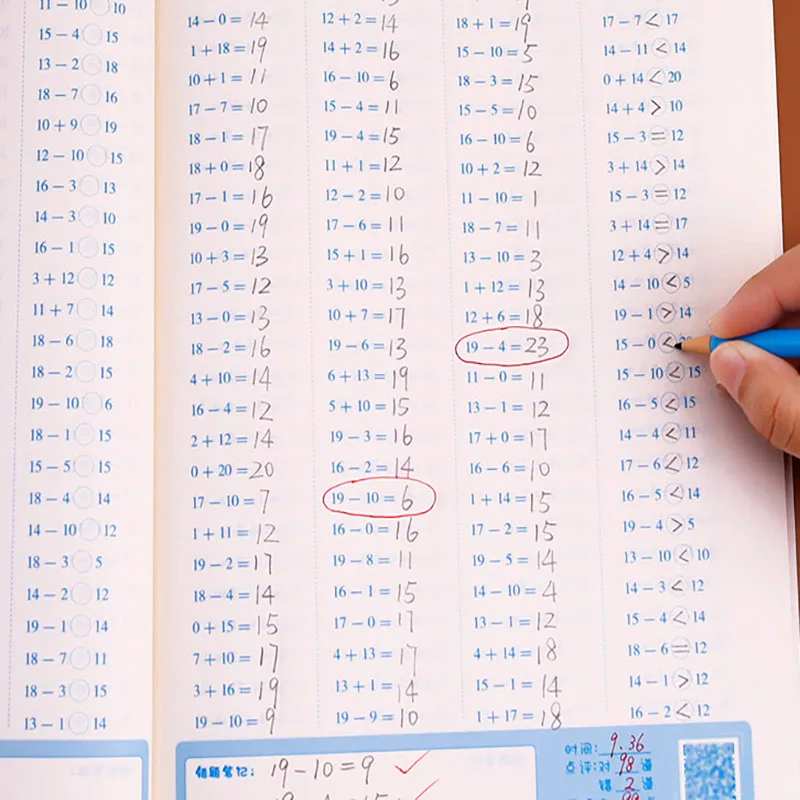 11 − 10 ○ 10
15 − 4 ○ 15
13 − 2 ○ 18
18 − 7 ○ 16
10 + 9 ○ 19
12 − 10 ○ 15
16 − 3 ○ 13
14 − 3 ○ 10
16 − 1 ○ 15
3 + 12 ○ 12
11 + 7 ○ 14
18 − 6 ○ 18
18 − 2 ○ 15
19 − 10 ○ 6
18 − 1 ○ 15
15 − 5 ○ 15
18 − 4 ○ 14
14 − 10 ○ 12
18 − 3 ○ 5
14 − 2 ○ 12
19 − 1 ○ 14
18 − 7 ○ 11
18 − 3 ○ 15
13 − 1 ○ 14
14 − 0 = 14
1 + 18 = 19
10 + 1 = 11
17 − 7 = 10
18 − 1 = 17
18 + 0 = 18
17 − 1 = 16
19 − 0 = 19
10 + 3 = 13
17 − 5 = 12
13 − 0 = 13
18 − 2 = 16
4 + 10 = 14
16 − 4 = 12
2 + 12 = 14
0 + 20 = 20
17 − 10 = 7
1 + 11 = 12
19 − 2 = 17
18 − 4 = 14
0 + 15 = 15
7 + 10 = 17
3 + 16 = 19
19 − 10 = 9
12 + 2 = 14
14 + 2 = 16
16 − 10 = 6
15 − 4 = 11
19 − 4 = 15
11 + 1 = 12
12 − 2 = 10
17 − 6 = 11
15 + 1 = 16
3 + 10 = 13
10 + 7 = 17
19 − 6 = 13
6 + 13 = 19
5 + 10 = 15
19 − 3 = 16
16 − 2 = 14
19 − 10 = 6
16 − 0 = 16
19 − 8 = 11
16 − 1 = 15
17 − 0 = 17
4 + 13 = 17
13 + 1 = 14
19 − 9 = 10
18 + 1 = 19
15 − 10 = 5
18 − 3 = 15
15 − 5 = 10
16 − 10 = 6
10 + 2 = 12
11 − 10 = 1
18 − 7 = 11
13 − 10 = 3
1 + 12 = 13
12 + 6 = 18
19 − 4 = 23
11 − 0 = 11
13 − 1 = 12
17 + 0 = 17
16 − 6 = 10
1 + 14 = 15
17 − 2 = 15
19 − 5 = 14
14 − 10 = 4
13 − 1 = 12
4 + 14 = 18
15 − 1 = 14
1 + 17 = 18
17 − 7 < 17
14 − 11 < 14
0 + 14 < 20
14 + 4 > 10
15 − 3 = 12
3 + 14 > 14
15 − 3 = 12
3 + 14 = 17
12 + 4 > 14
14 − 10 < 5
19 − 1 > 14
15 − 0 <
15 − 10 < 15
16 − 5 < 15
14 − 4 < 11
17 − 6 < 12
16 − 5 < 14
19 − 4 > 5
13 − 10 < 10
14 − 3 < 12
15 − 4 < 14
18 − 6 = 12
14 − 1 > 12
16 − 2 < 12
错题笔记： 19 − 10 = 9 ✓
时间: 9.36
点评:对 98 道
错 2 道